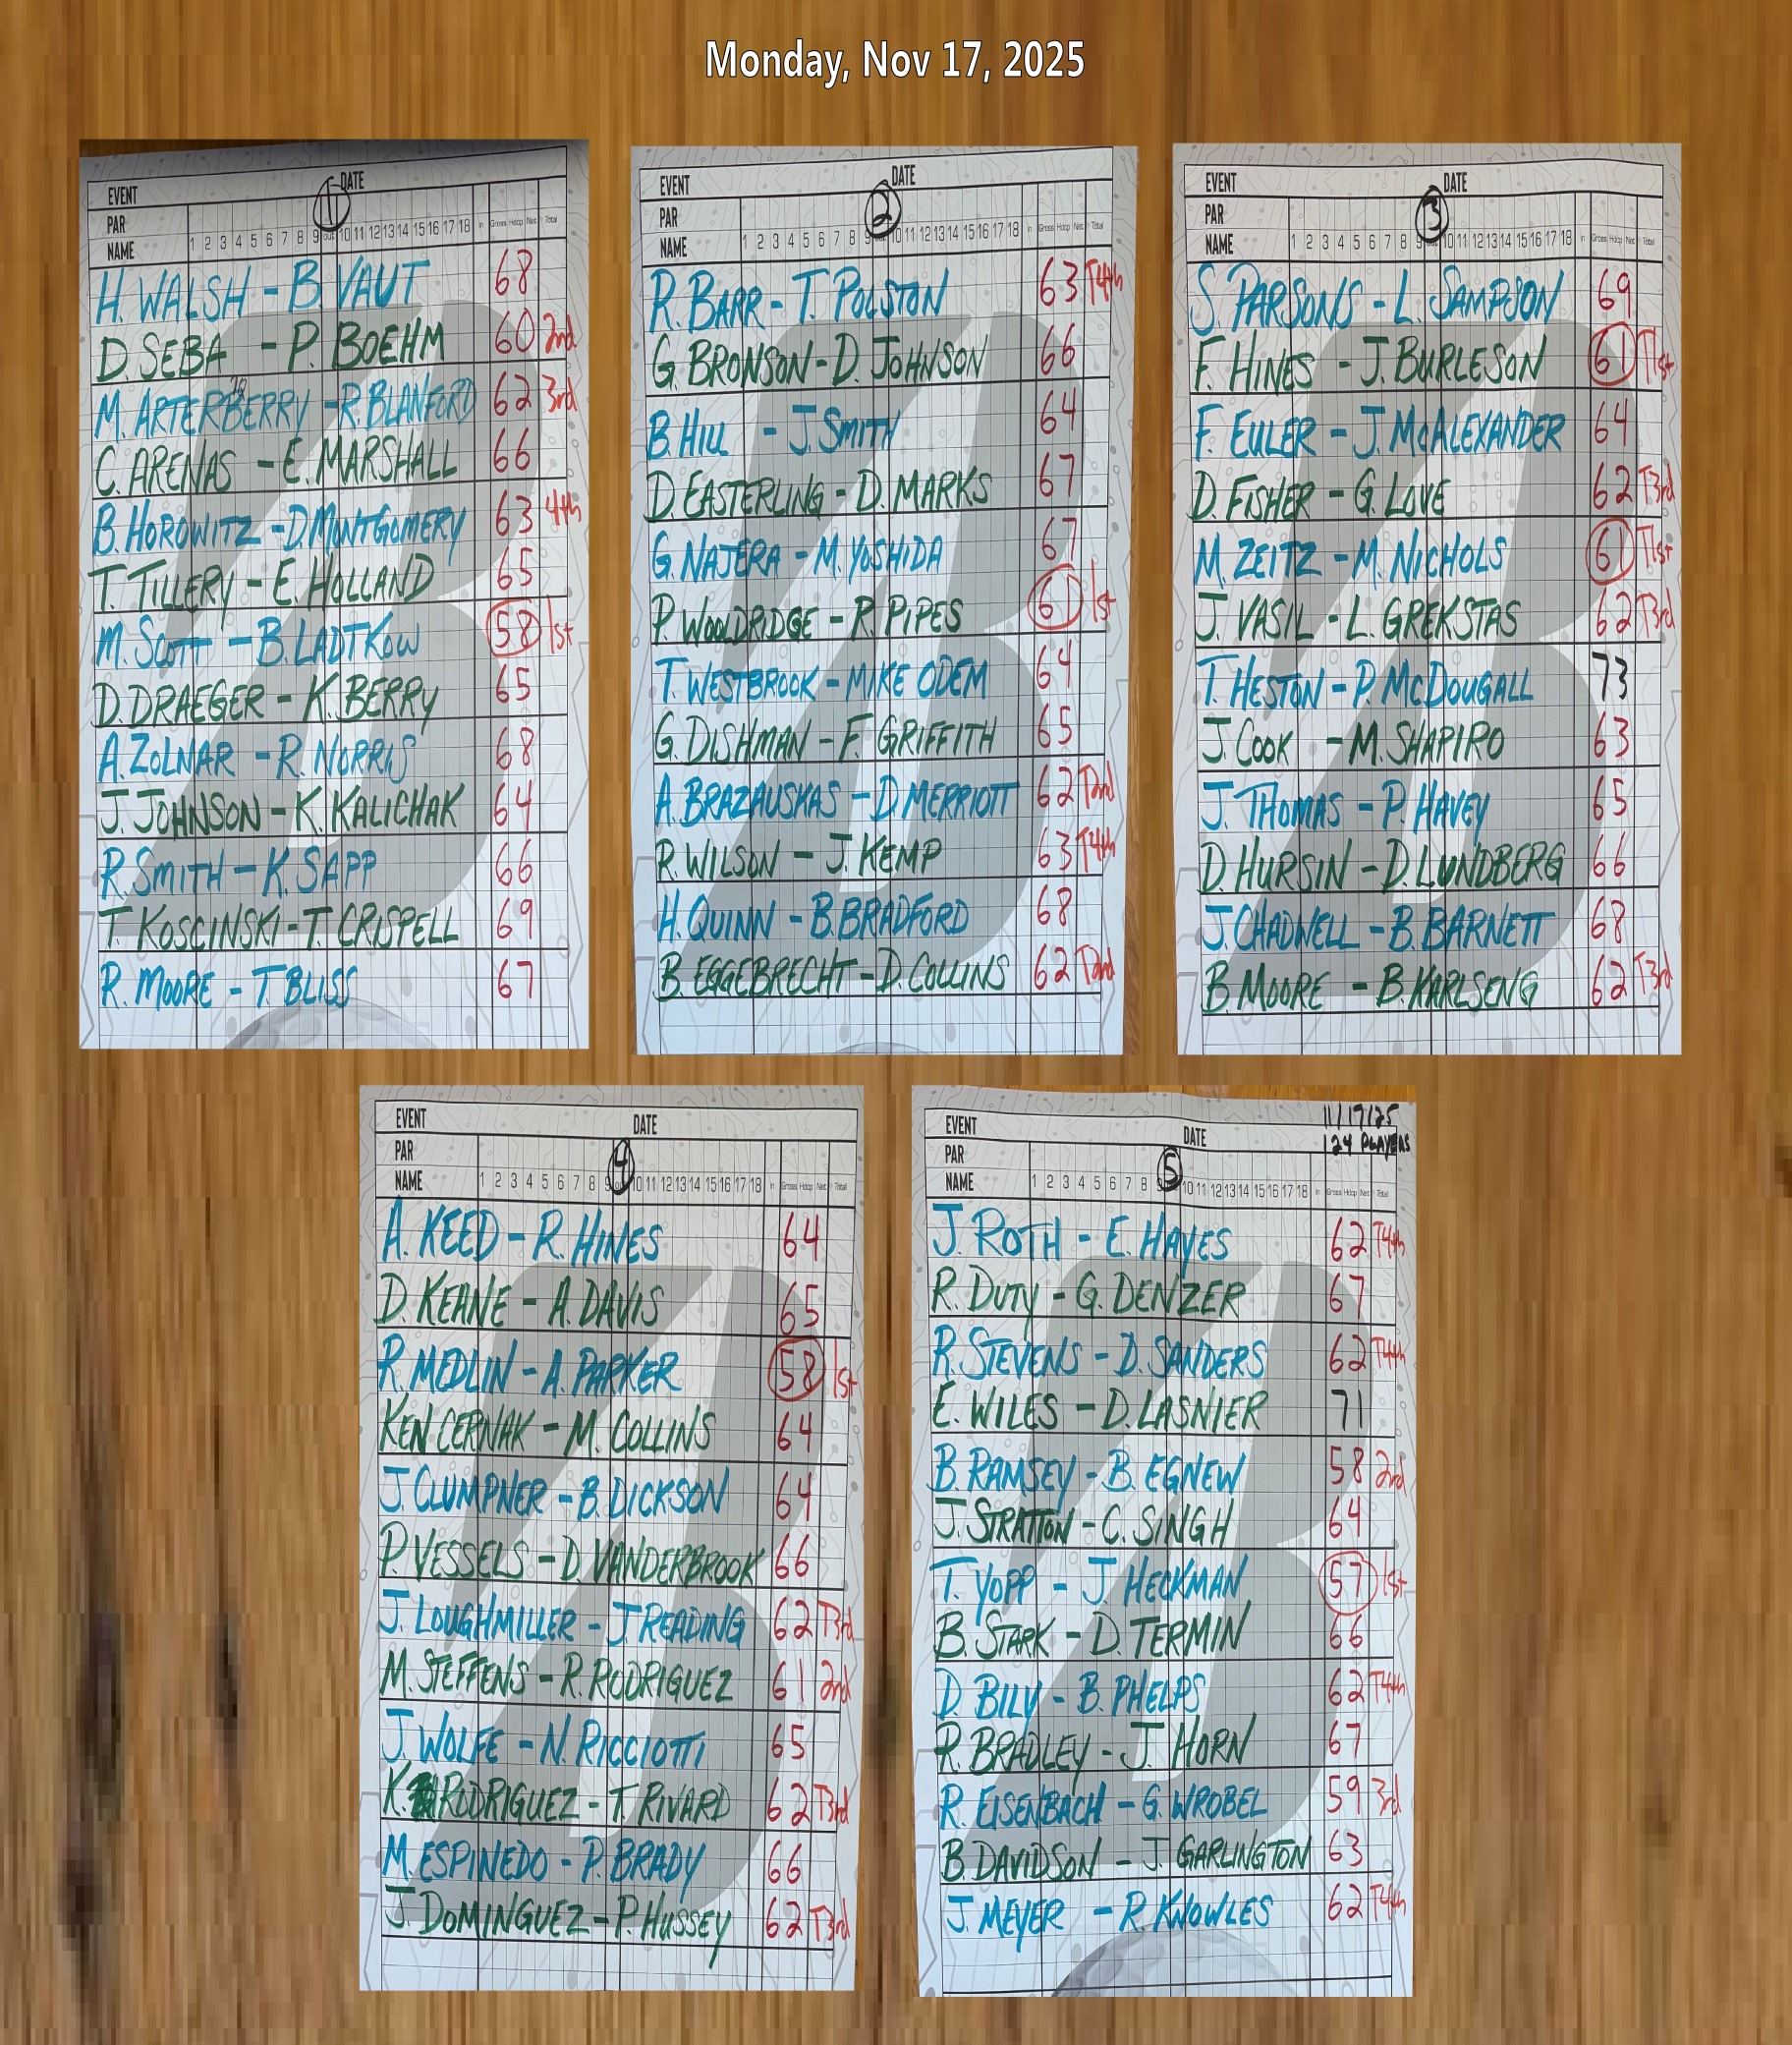 Monday, Nov 17, 2025
EVENT DATE
PAR 1
NAME 1 2 3 4 5 6 7 8 9 out 10 11 12 13 14 15 16 17 18 in Gross Hdcp Net Total
H. WALSH - B. VAUT 68
D. SEBA - P. BOEHM 60 2nd
M. ARTERBERRY - R. BLANFORD 62 3rd
C. ARENAS - E. MARSHALL 66
B. HOROWITZ - D. MONTGOMERY 63 4th
T. TILLERY - E. HOLLAND 65
M. SCOTT - B. LADTKOW 58 1st
D. DRAEGER - K. BERRY 65
A. ZOLNAR - R. NORRIS 68
J. JOHNSON - K. KALICHAK 64
R. SMITH - K. SAPP 66
T. KOSCINSKI - T. CRISPELL 69
R. MOORE - T. BLISS 67
EVENT DATE
PAR 2
NAME 1 2 3 4 5 6 7 8 9 10 11 12 13 14 15 16 17 18 in Gross Hdcp Net Total
R. BARR - T. POLSTON 63 T4th
G. BRONSON - D. JOHNSON 66
B. HILL - J. SMITH 64
D. EASTERLING - D. MARKS 67
G. NAJERA - M. YOSHIDA 67
P. WOOLDRIDGE - R. PIPES 61 1st
T. WESTBROOK - MIKE ODEM 64
G. DISHMAN - F. GRIFFITH 65
A. BRAZAUSKAS - D MERRIOTT 62 T2nd
R. WILSON - J. KEMP 63 T4th
H. QUINN - B. BRADFORD 68
B. EGGEBRECHT - D. COLLINS 62 T2nd
EVENT DATE
PAR 3
NAME 1 2 3 4 5 6 7 8 9 10 11 12 13 14 15 16 17 18 in Gross Hdcp Net Total
S. PARSONS - L. SAMPSON 69
F. HINES - J. BURLESON 61 T1st
F. EULER - J. McALEXANDER 64
D. FISHER - G. LOVE 62 T3rd
M. ZEITZ - M. NICHOLS 61 T1st
J. VASIL - L. GREKSTAS 62 T3rd
T. HESTON - P. McDOUGALL 73
J. COOK - M. SHAPIRO 63
J. THOMAS - P. HAVEY 65
D. HURSIN - D. LUNDBERG 66
J. CHADWELL - B. BARNETT 68
B. MOORE - B. KARLSENG 62 T3rd
EVENT DATE
PAR 4
NAME 1 2 3 4 5 6 7 8 9 10 11 12 13 14 15 16 17 18 in Gross Hdcp Net Total
A. KEED - R. HINES 64
D. KEANE - A. DAVIS 65
R. MEDLIN - A. PARKER 58 1st
KEN CERNAK - M. COLLINS 64
J. CLUMPNER - B. DICKSON 64
P. VESSELS - D. VANDERBROOK 66
J. LOUGHMILLER - J. READING 62 T3rd
M. STEFFENS - R. RODRIGUEZ 61 2nd
J. WOLFE - N. RICCIOTTI 65
K. RODRIGUEZ - T. RIVARD 62 T3rd
M. ESPINEDO - P. BRADY 66
J. DOMINGUEZ - P. HUSSEY 62 T3rd
11/17/25
EVENT DATE 124 PLAYERS
PAR 5
NAME 1 2 3 4 5 6 7 8 9 10 11 12 13 14 15 16 17 18 in Gross Hdcp Net Total
J. ROTH - E. HAYES 62 T4th
R. DUTY - G. DENZER 67
R. STEVENS - D. SANDERS 62 T4th
E. WILES - D. LASNIER 71
B. RAMSEY - B. EGNEW 58 2nd
J. STRATTON - C. SINGH 64
T. YOPP - J. HECKMAN 57 1st
B. STARK - D. TERMIN 66
D. BILY - B. PHELPS 62 T4th
R. BRADLEY - J. HORN 67
R. EISENBACH - G. WROBEL 59 3rd
B. DAVIDSON - J. GARLINGTON 63
J. MEYER - R. KNOWLES 62 T4th